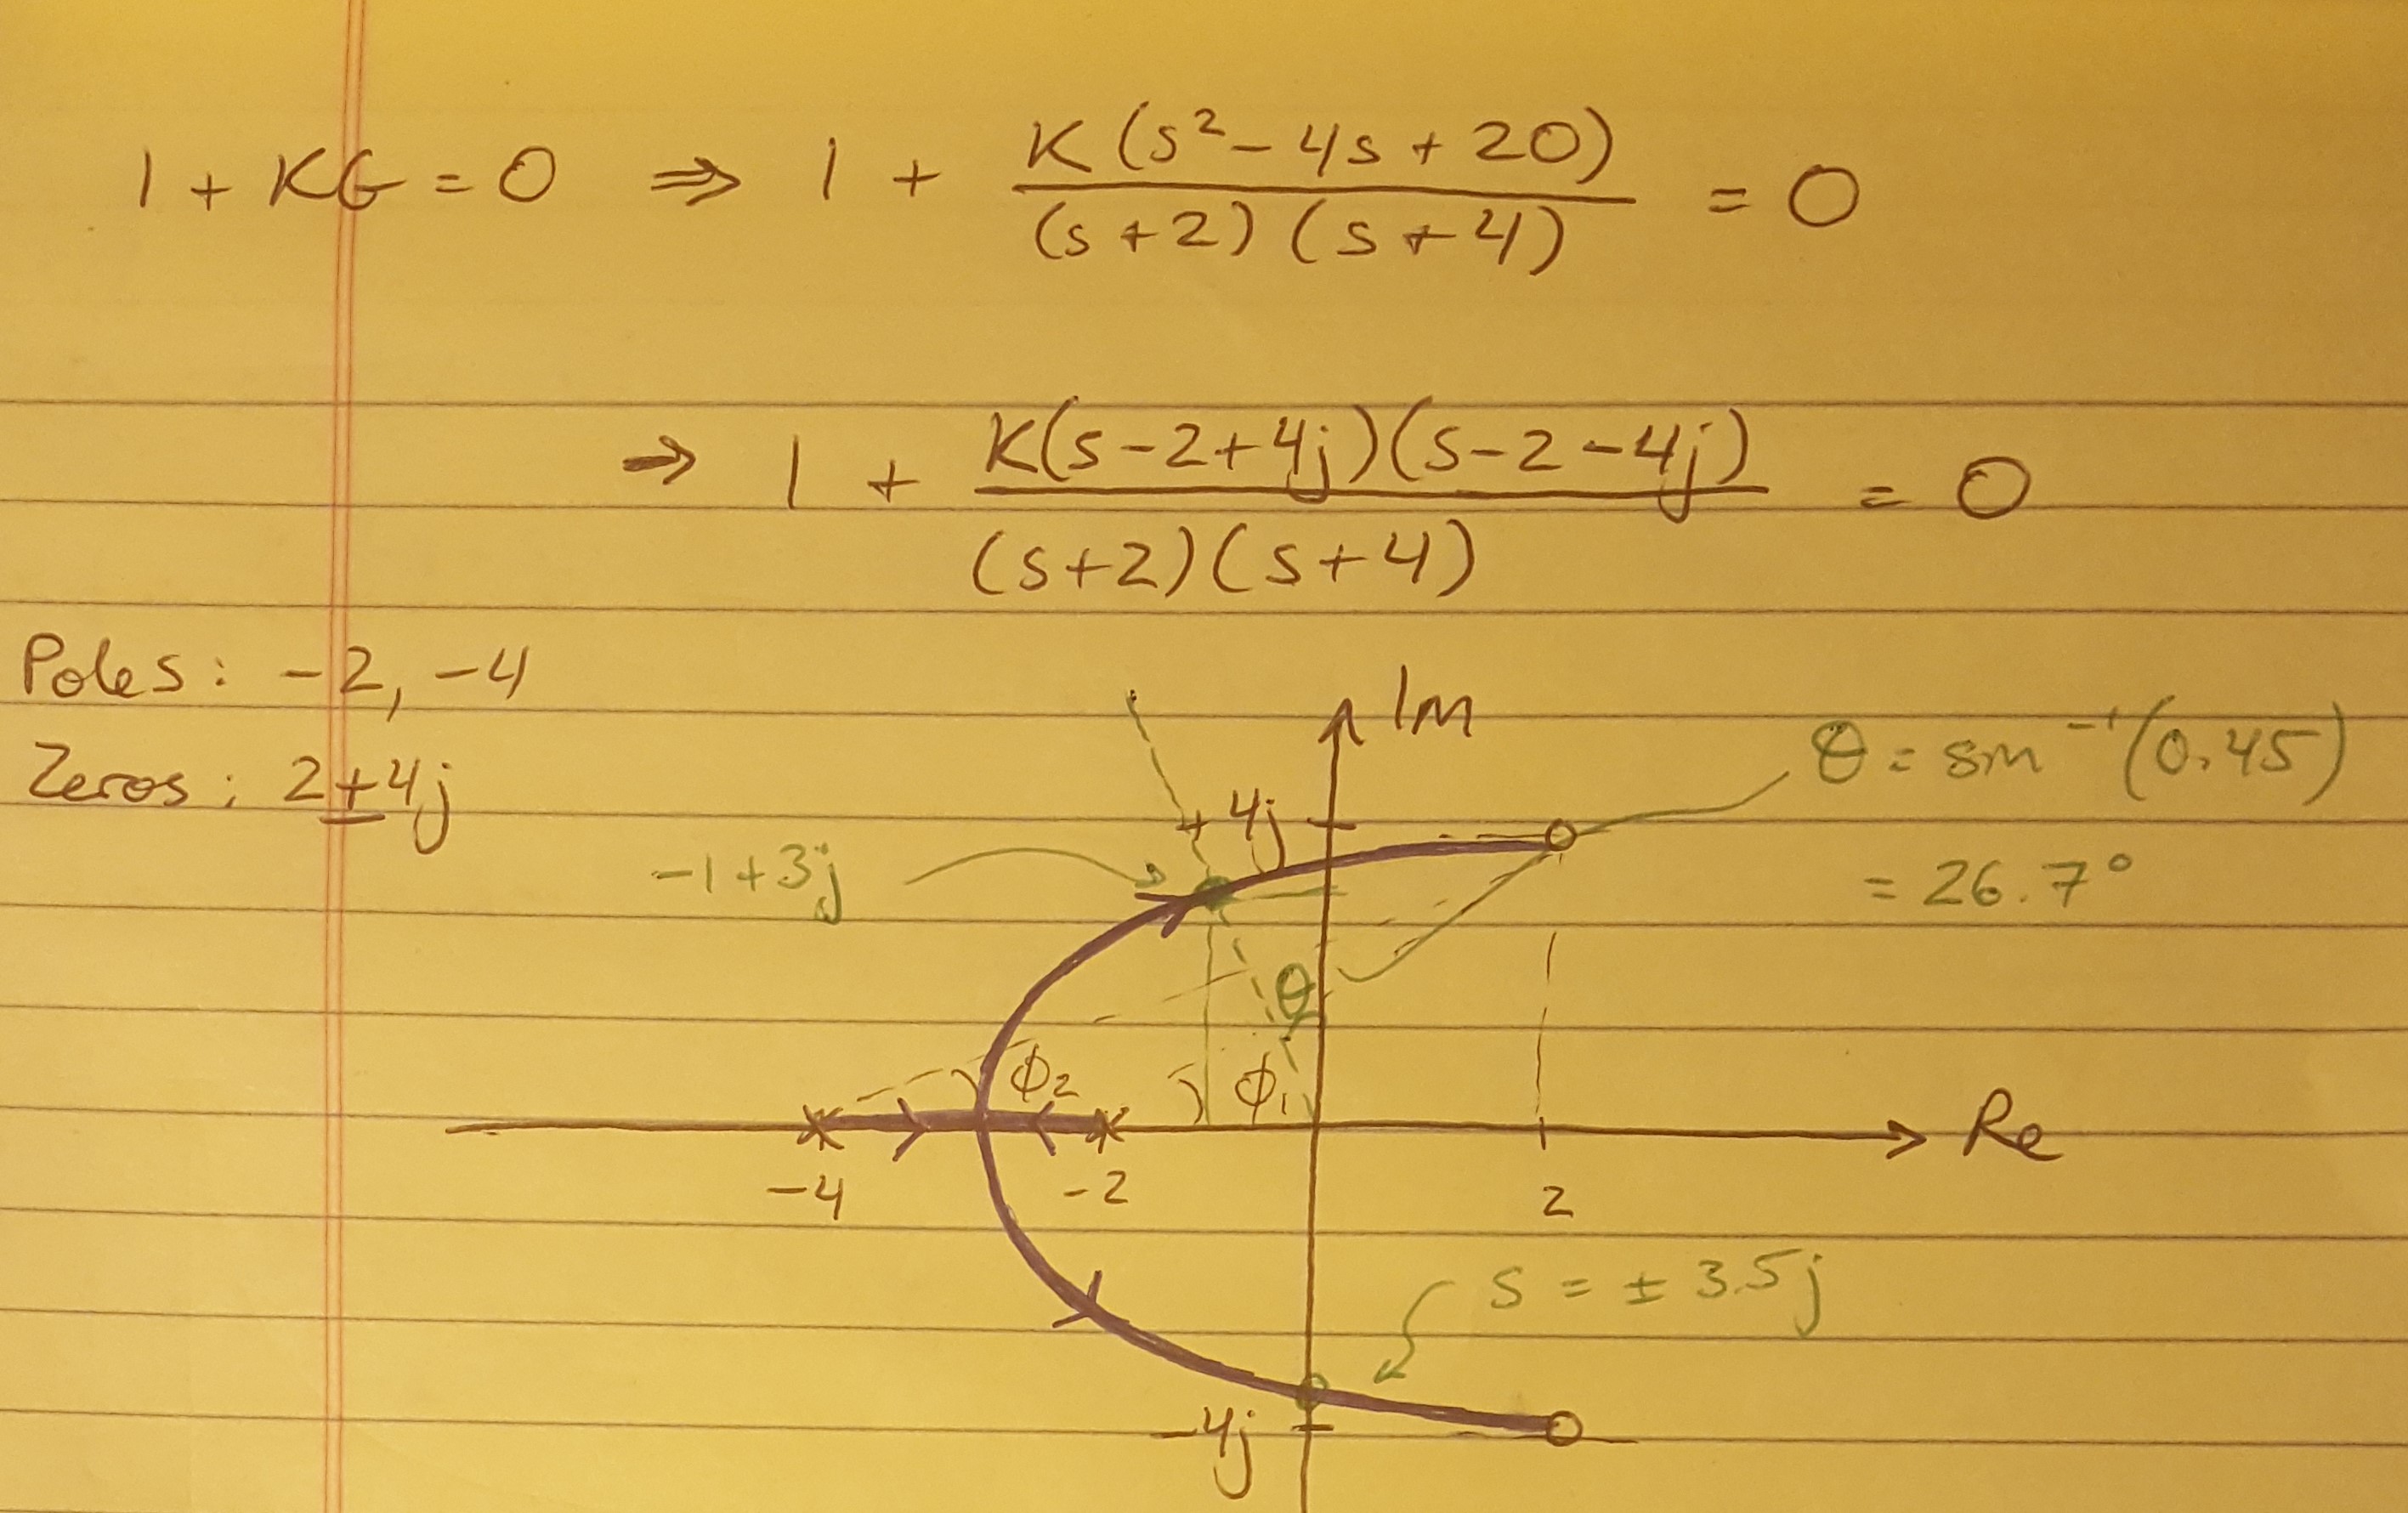 1 + KG = 0 ⇒ 1 + K(s² - 4s + 20) / (s + 2)(s + 4) = 0
⇒ 1 + K(s-2+4j)(s-2-4j) / (s+2)(s+4) = 0
Poles: -2, -4
Zeros: 2±4j
Im
θ = sin⁻¹(0.45)
= 26.7°
+4j
-1+3j
θ
ϕ₂
ϕ₁
Re
-4
-2
2
s = ±3.5j
-4j